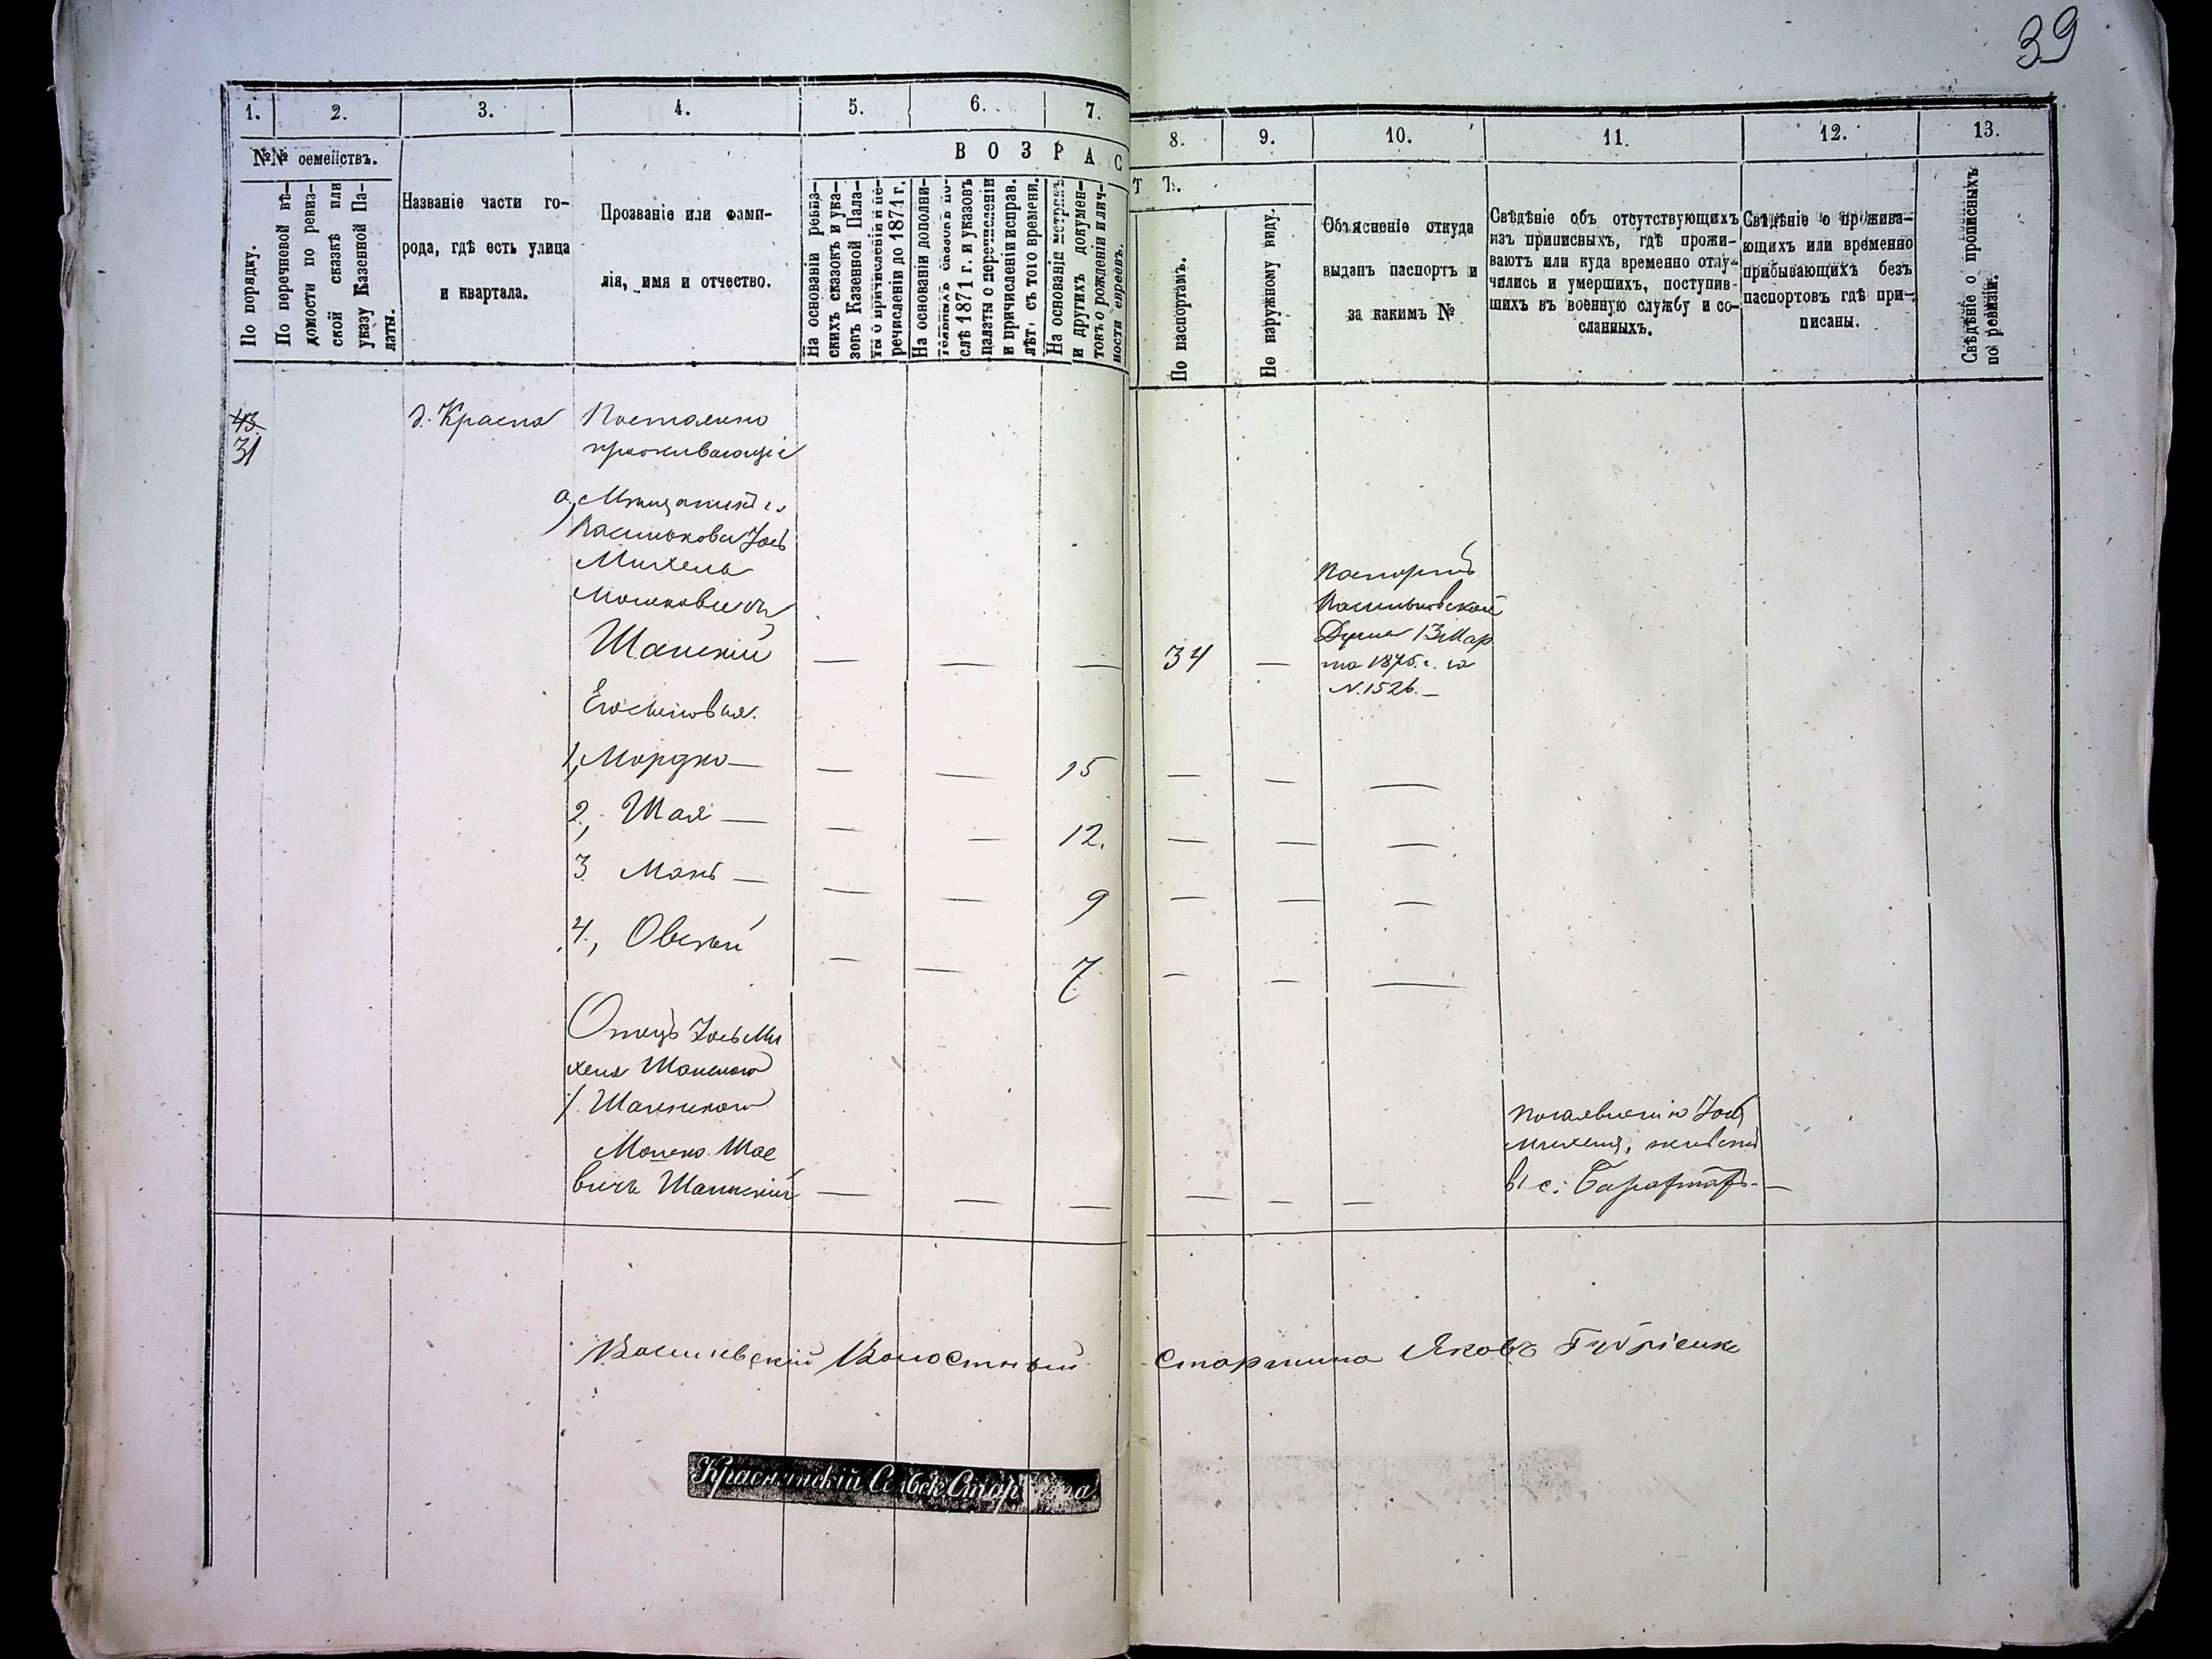 39
1. 2. 3. 4. 5. 6. 7. 8. 9. 10. 11. 12. 13.
№№ семействъ.
В О З Р А С Т Ъ.
По порядку.
По перечневой вѣ-
домости по ревиз-
ской сказкѣ или
указу Казенной Па-
латы.
Названіе части го-
рода, гдѣ есть улица
и квартала.
Прозваніе или фами-
лія, имя и отчество.
На основаніи ревиз-
скихъ сказокъ и ука-
зовъ Казенной Пала-
ты о причисленіи и пе-
речисленіи до 1871 г.
На основаніи дополни-
тельныхъ сказокъ по-
слѣ 1871 г. и указовъ
палаты о перечисленіи
и причисленіи исправ.
лѣт. съ того времени.
На основаніи метрикъ
и другихъ докумен-
товъ о рожденіи и лич-
ности евреевъ.
По паспортамъ.
По наружному виду.
Объясненіе откуда
выданъ паспортъ и
за какимъ №
Свѣдѣніе объ отсутствующихъ
изъ приписныхъ, гдѣ прожи-
ваютъ или куда временно отлу-
чились и умершихъ, поступив-
шихъ въ военную службу и со-
сланныхъ.
Свѣдѣніе о прожива-
ющихъ или временно
прибывающихъ безъ
паспортовъ гдѣ при-
писаны.
Свѣдѣніе о прописныхъ
по ревизіи.
43.
31
д. Красна
Постоянно
проживающіе
а, Мѣщанинъ г.
Василькова Іось
Михель
Мошковичъ
Шанскій — — — 34 —
Паспортъ
Васильковской
Думы 13 Мар
та 1875 г. за
N. 1526. —
Его сыновья.
1, Мордко — — — 15 — — —
2, Шая — — — 12. — — —
3 Манъ — — — 9 — — —
4, Овсѣй — — 7 — — —
Отецъ Іось Ми
хеля Шанского
Мошко Шае
вичъ Шанскій — — — — — —
По заявленію Іось
Михеля, живетъ
въ с:
Волостный Старшина Яковъ
Краснянскій Сельск. Старшина